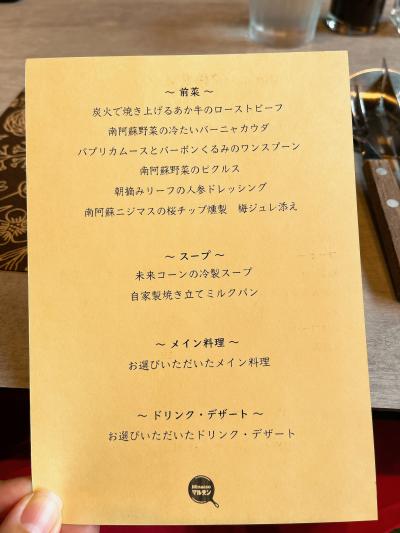 〜 前菜 〜
炭火で焼き上げるあか牛のローストビーフ
南阿蘇野菜の冷たいバーニャカウダ
パプリカムースとバーボンくるみのワンスプーン
南阿蘇野菜のピクルス
朝摘みリーフの人参ドレッシング
南阿蘇ニジマスの桜チップ燻製 梅ジュレ添え
〜 スープ 〜
未来コーンの冷製スープ
自家製焼き立てミルクパン
〜 メイン料理 〜
お選びいただいたメイン料理
〜 ドリンク・デザート 〜
お選びいただいたドリンク・デザート
マルデン